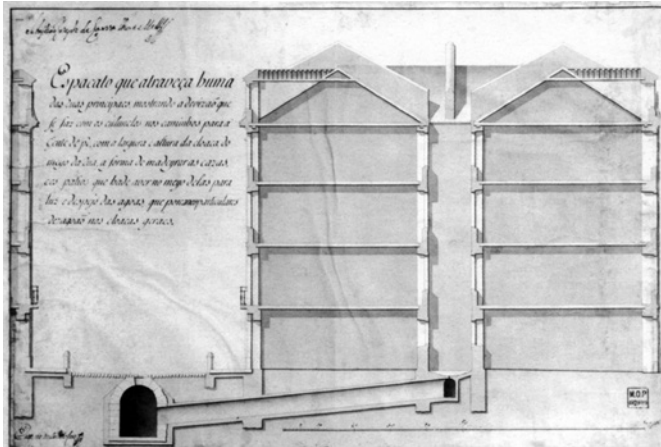 Espacato que atraveça huma
das ruas principaes, mostrando a devizaõ que
se faz com os colunelos nos caminhos para a
Gente de pé, com a largura e altura da cloaca do
meyo da rua, a forma de madeyrar as cazas,
e os patios que hade aver no meyo delas para
luz e despejo das agoas, que por canos particulares
dezagoaõ nas cloacas geraes.
M.O.P